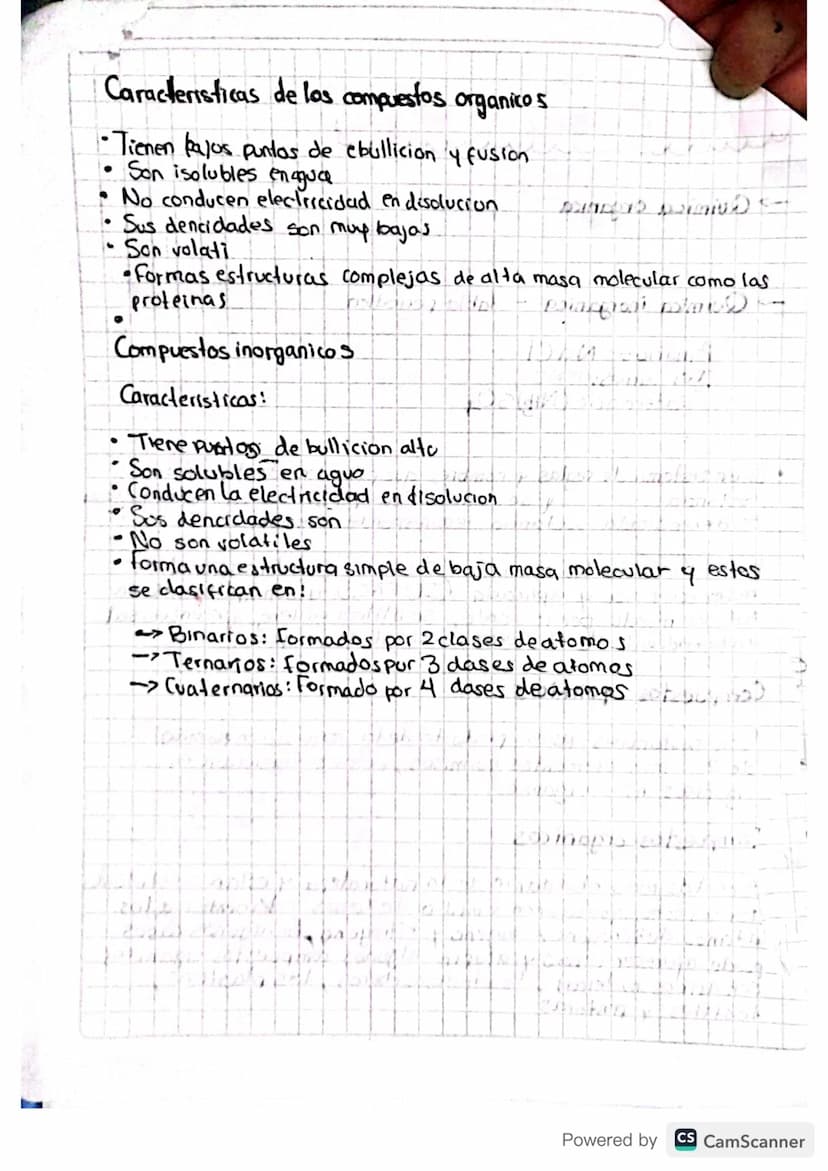 Caracteristicas de los compuestos organicos
• Tienen bajos puntos de ebullicion y fusion
• Son isolubles en agua
• No conducen electricidad en disolucion
• Sus dencidades son muy bajas
• Son volati
• Formas estructuras complejas de alta masa molecular como las
proteinas
•
Compuestos inorganicos
Caracteristicas:
• Tiene puntos de bullicion alto
• Son solubles en agua
• Conducen la electricidad en disolucion
• Sus dencidades son
• No son volatiles
• Forma una estructura simple de baja masa molecular y estos
se clasifican en:
-> Binarios: Formados por 2 clases de atomos
-> Ternarios: Formados por 3 clases de atomos
-> Cuaternarios: Formado por 4 clases de atomos
Powered by CS CamScanner